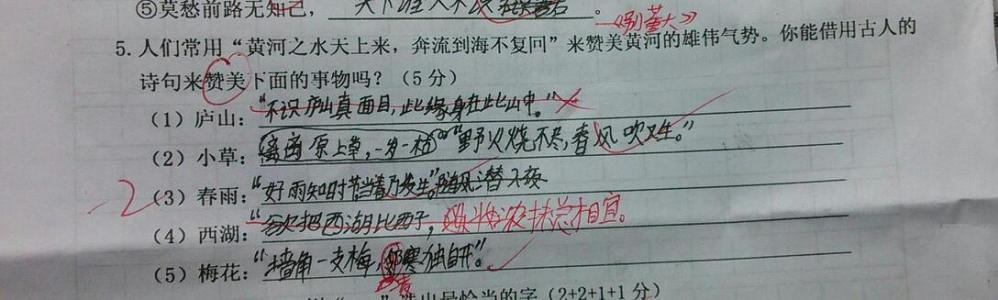 ⑤莫愁前路无知己，天下谁人不识 。《别董大》
5. 人们常用“黄河之水天上来，奔流到海不复回”来赞美黄河的雄伟气势。你能借用古人的
诗句来赞美下面的事物吗？（5分）
（1）庐山：“不识庐山真面目，此缘身在此山中。”
（2）小草：离离原上草，一岁一枯 “野火烧不尽，春风吹又生。”
-2（3）春雨：“好雨知时节当春乃发生。随风潜入夜
（4）西湖：“欲把西湖比西子，淡妆浓抹总相宜。
（5）梅花：“墙角一支梅，寒独自开”。
选出最恰当的字（2+2+1+1分）